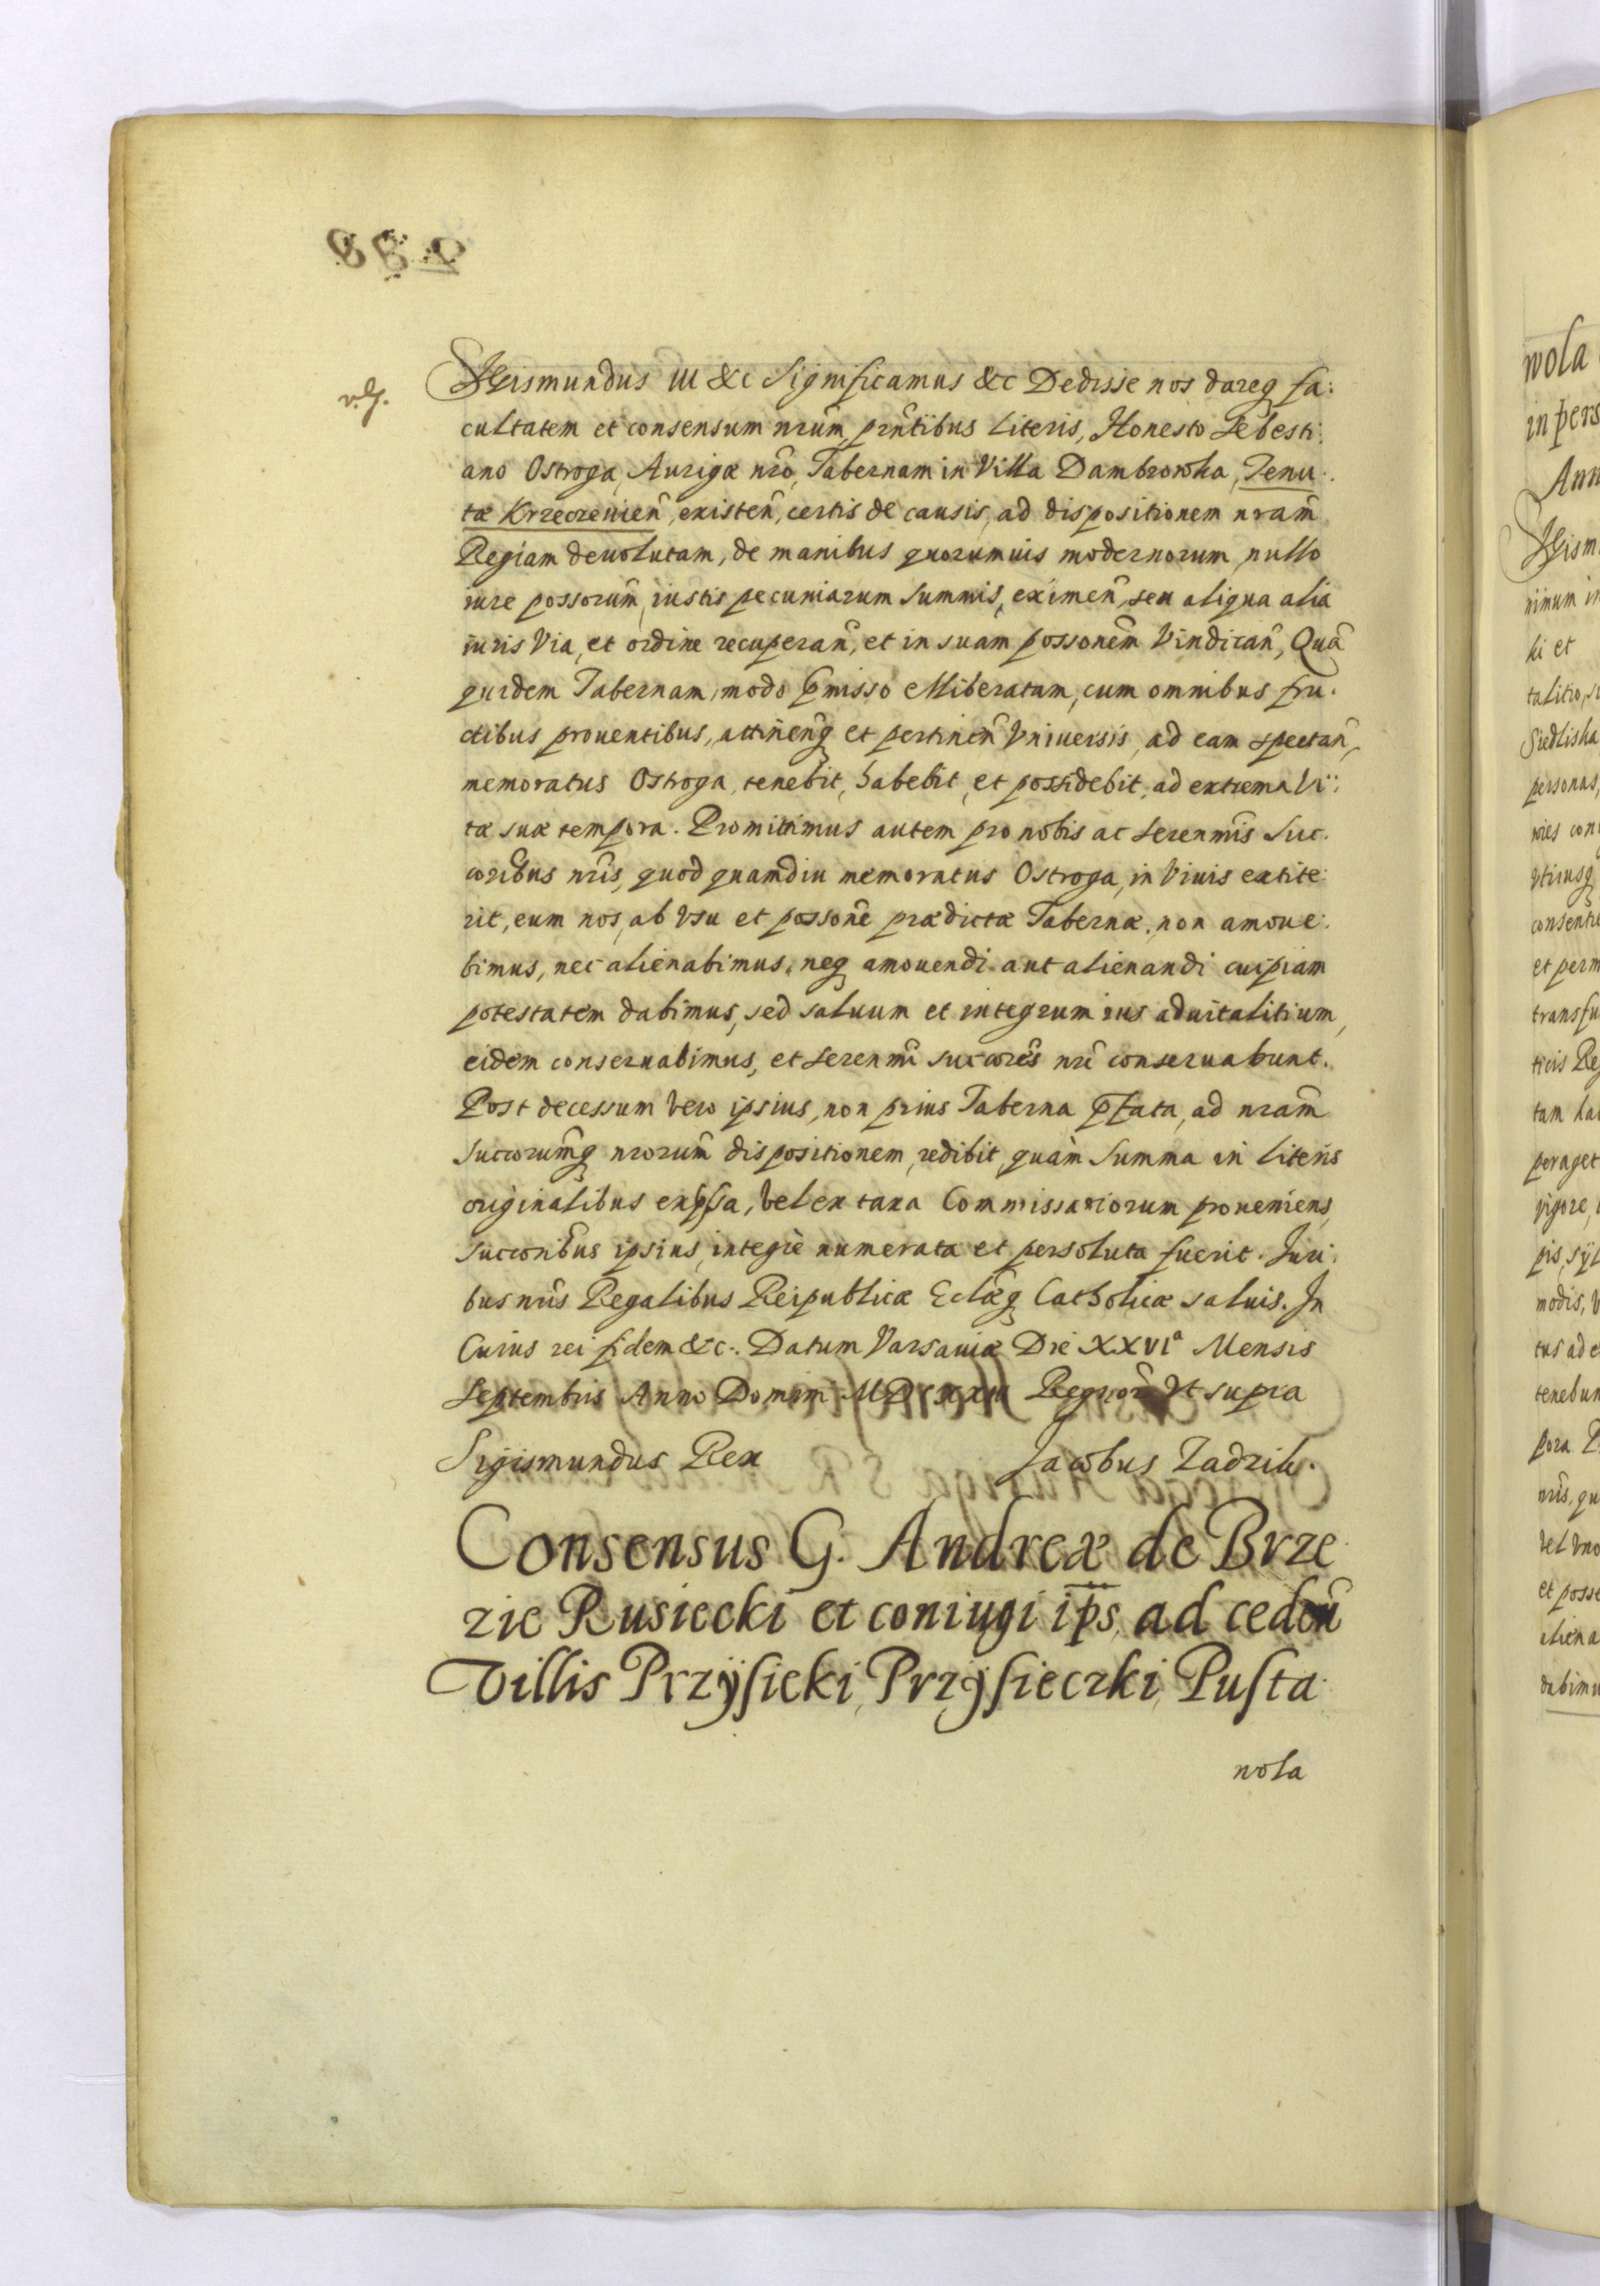 v. g.
Sigismundus III &c Significamus &c Dedisse nos dareq̃ fa:
cultatem et consensum nrũm, prñtibus Literis, Honesto Sebesti:
ano Ostroga, Aurigæ nrõ, Tabernam in Villa Dambrowka, Tenu:
tæ Krzeczenieñ, existeñ, certis de causis, ad dispositionem nrãm
Regiam deuolutam, de manibus quorumuis modernorum, nullo
iure possorum̃, iustis pecuniarum summis, eximeñ, seu aliqua alia
iuris Via, et ordine recuperañ, et in suam possonem̃ Vindicañ, Quã
quidem Tabernam modo p̃misso elliberatam, cum omnibus fru:
ctibus prouentibus, attineñq̃ et pertineñ Vniuersis, ad eam spectañ,
memoratus Ostroga, tenebit, habebit, et possidebit, ad extrema Vi:
tæ suæ tempora. Promittimus autem pro nobis ac Serenmĩs Suc:
coribũs nrĩs, quod quamdiu memoratus Ostroga, in Viuis extite:
rit, eum nos, ab Vsu et possonẽ prædictæ Tabernæ, non amoue:
bimus, nec alienabimus, neq̃ amouendi aut alienandi cuipiam
potestatem dabimus, sed saluum et integrum ius aduitalitium,
eidem conseruabimus, et Serenmĩ succorẽs nrĩ conseruabunt.
Post decessum Vero ipsius, non prius Taberna p̃fata, ad nrãm
Succorumq̃ nrorum̃ dispositionem, redibit, quàm Summa in Literis
originalibus exp̃ssa, Vel ex taxa Commissariorum proueniens,
succoribũs ipsius, integrè numerata et persoluta fuerit. Juri:
bus nrĩs Regalibus Reipublicæ Eclæ̃q̃ Catholicæ saluis. In
Cuius rei fidem &c. Datum Varsauiæ Die XXVIª Mensis
Septembris Anno Domini Regnorũ Vt supra
Sigismundus Rex Jacobus Zadzik.
Consensus G. Andreæ de Brze
zie Rusiecki et coniugi ip̃s, ad cedeñ
Villis Przÿsieki, Przÿsieczki, Pusta
wola